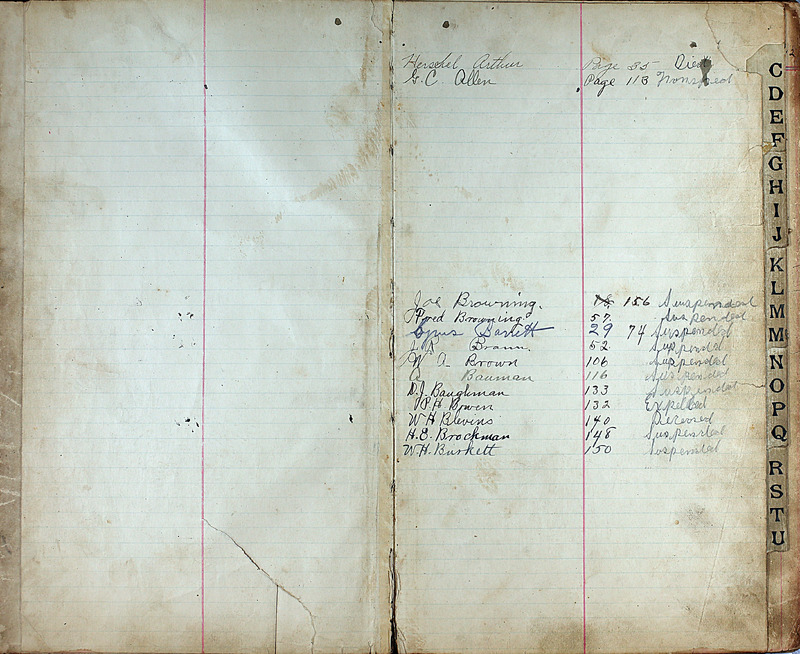 Herschel Arthur Page 35 Died
G. C. Allen Page 113
Joe Browning. 156 Suspended
Browning 57 Suspended
Barrett 29 74 Suspended
Braun. 52 Suspended
W A Brown 106 Suspended
Bauman 116 Suspended
D. J. Baughman 133 Suspended
Bowen 132 Expelled
W H Blevins 140
H. E. Brockman 148 Suspended
W. H. Burkett 150 Suspended
C
D
E
F
G
H
I
J
K
L
M
M
N
O
P
Q
R
S
T
U